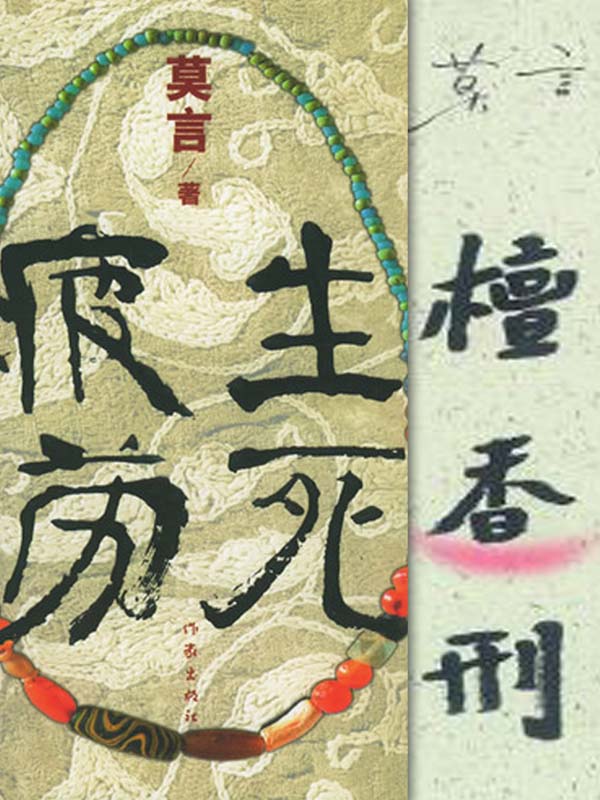 莫言/著
生死
疲劳
作家出版社
莫言
檀香刑